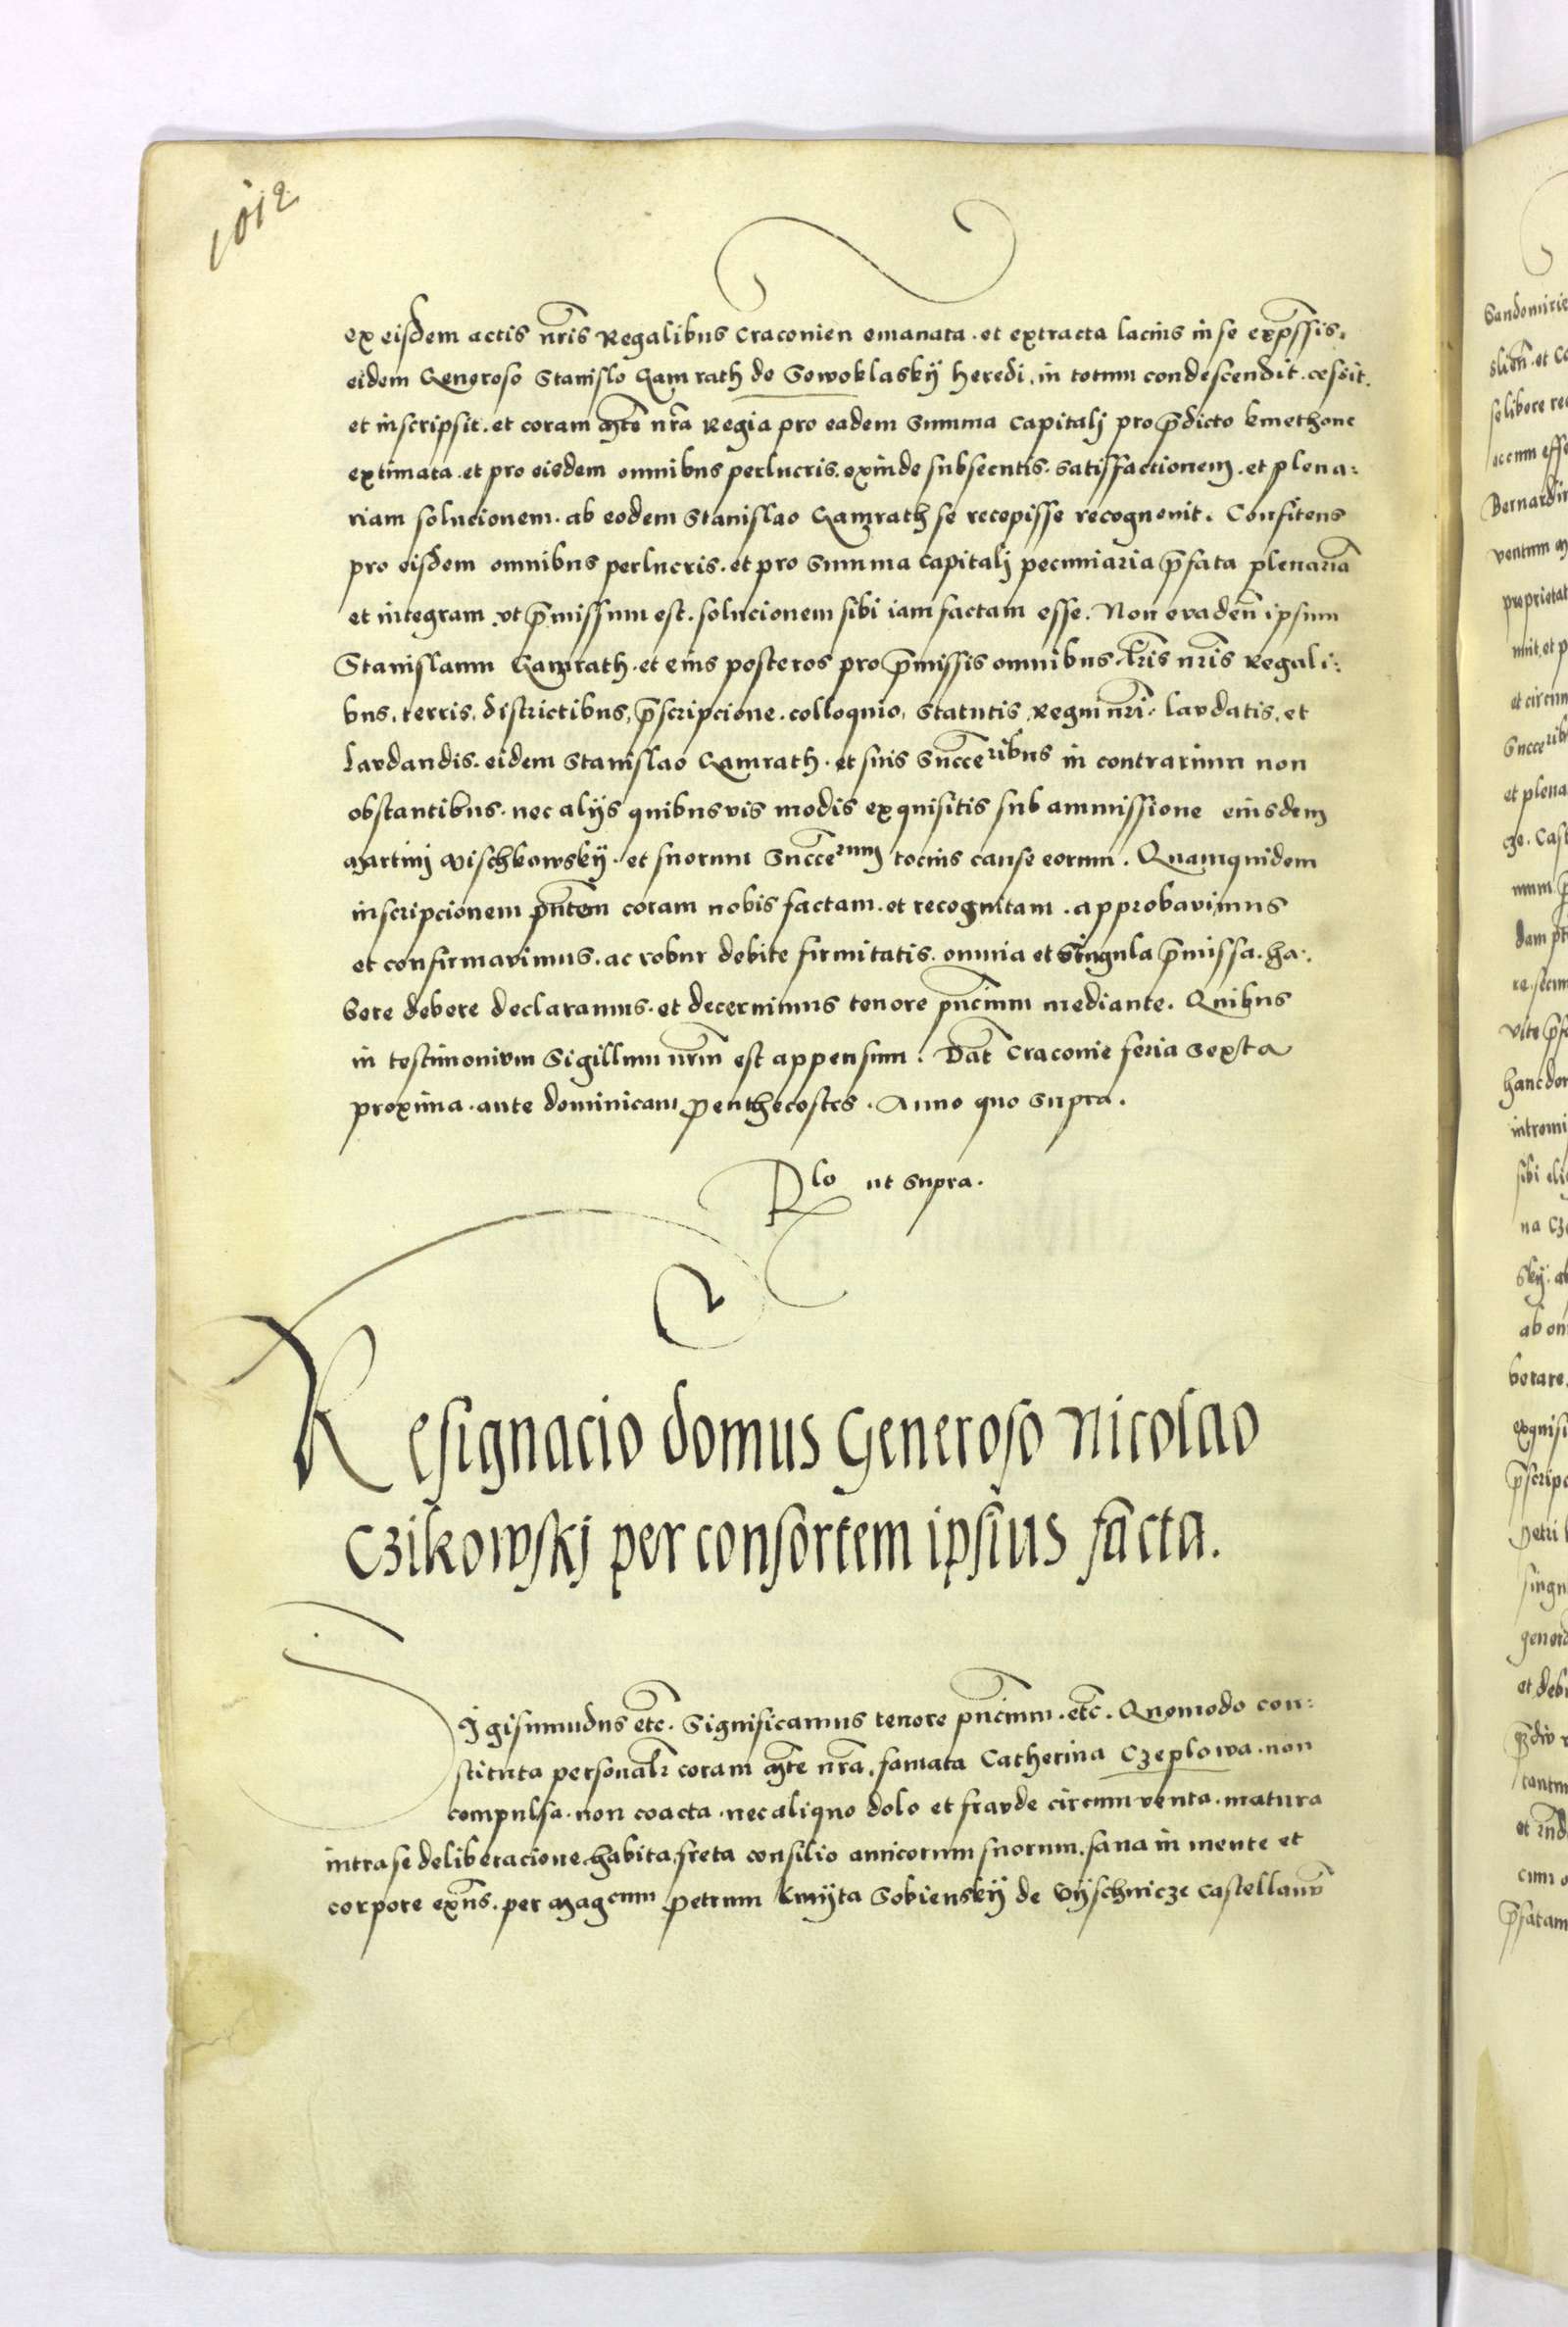 1012
ex eisdem actis nr̃is Regalibus Craconien emanata . et extracta lacius in se exp̃ssis.
eidem Generoso Stanislo Gamrath de Sowoklasky heredi . in totum condescendit . cessit.
et inscripsit . et coram Mte nrã Regia pro eadem Summa Capitalj pro p̃dicto kmethone
extimata . et pro eisdem omnibus perlucris . exinde subsecutis . Satisfactionem . et plena:
riam solucionem . ab eodem Stanislao Gamrath se recepisse recognovit . Confitens
pro eisdem omnibus perlucris . et pro Summa Capitalj pecuniaria p̃fata plenariã
et integram vt p̃missum est . solucionem sibi iam factam esse . Non evadeñ ipsum
Stanislaum Gamrath . et eius posteros pro p̃missis omnibus . lr̃is nr̃is Regali:
bus . terris . districtibus , p̃scripcione . colloquio , Statutis Regni nr̃i . laudatis . et
laudandis . eidem Stanislao Gamrath . et suis Succeribus in contrarium non
obstantibus . nec alijs quibusvis modis exquisitis sub ammissione eiusdem
Martini Mischkowsky . et suorum Succerum tocius cause eorum . Quamquidem
inscripcionem pñtem coram nobis factam . et recognitam . approbavimus
et confirmavimus . ac robur debite firmitatis . omnia et Singula p̃missa . ha:
bere debere declaramus . et decernimus tenore pñcium mediante . Quibus
in testimonium Sigillum nr̃m est appensum . Dat̃ Craconie feria Sexta
proxima . ante dominicam Penthecostes . Anno quo Supra .
Rlo ut Supra .
Resignacio domus Generoso Nicolao
Czikowskj per consortem ipsius facta .
Sigismundus etc̃ . Significamus tenore pñcium . etc̃ . Quomodo con:
stituta personalr̃ coram Mte nrã . famata Catherina Czeplowa . non
compulsa . non coacta . nec aliquo dolo et fraude circumventa . matura
intra se deliberacione habita , freta consilio amicorum suorum . sana in mente et
corpore exñs . per Magcum Petrum Kmyta Sobiensky de Vyschnicze Castellanũ